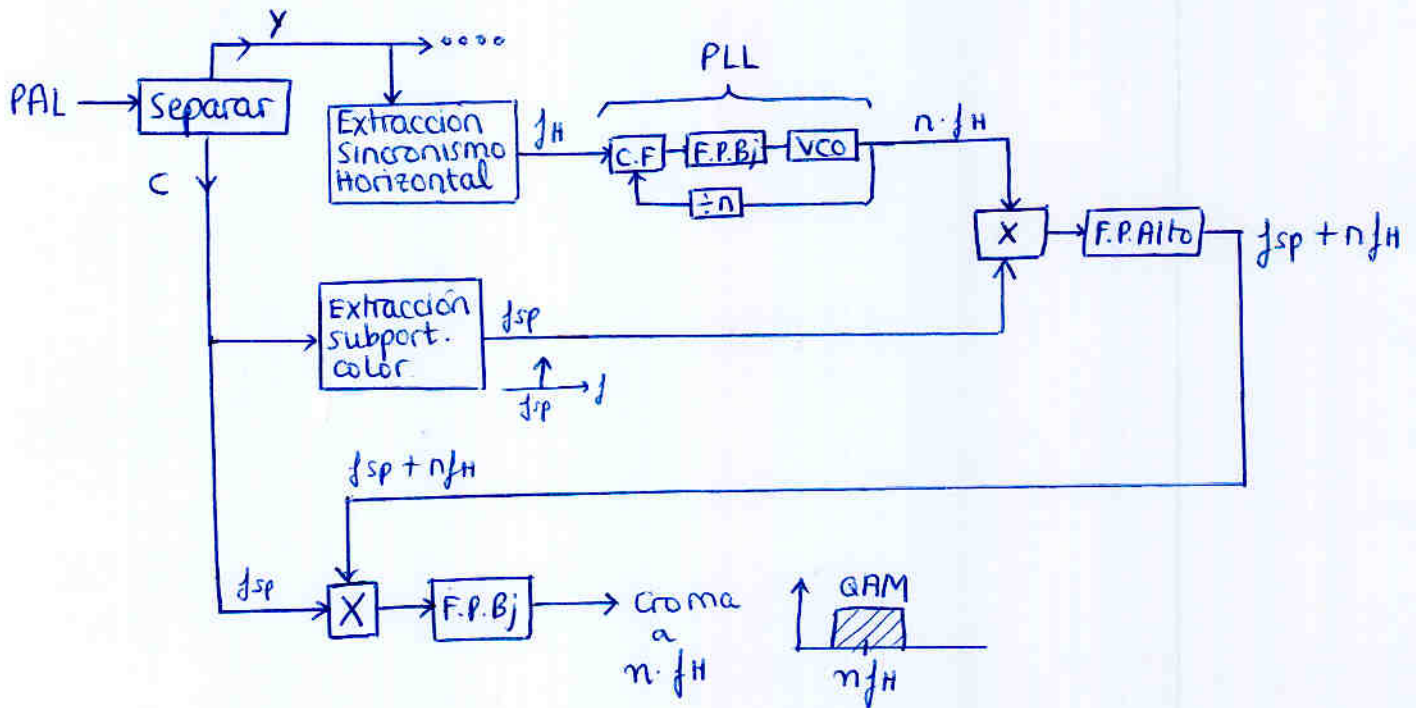 Y
PAL
Separar
C
Extracción
Sincronismo
Horizontal
fH
PLL
C.F
F.P.Bj
VCO
÷n
n·fH
X
F.P.Alto
fsp + nfH
Extracción
subport.
color
fsp
f
fsp
fsp + nfH
fsp
X
F.P.Bj
Croma
a
n·fH
QAM
nfH